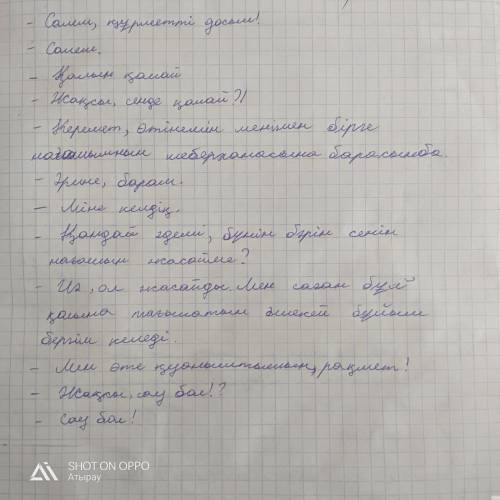 - Салем, құрметті досым!
- Салем.
- Қалың қалай
- Жақсы, сенде қалай?!
- Керемет, өтінемін менімен бірге
нағашымның шеберханасына барасыңба.
- Әрине, барам.
- Міне келдік.
- Қандай әдемі, бұнін бәрін сенің
нағашың жасайме?
- Иә, ол жасайды. Мен саған бұл
қолыңа тағылатын әшекей бұйым
бергім келеді.
- Мен өте қуаныштымын, рақмет!
- Жақсы, сау бол!?
- Сау бол!
SHOT ON OPPO
Атырау